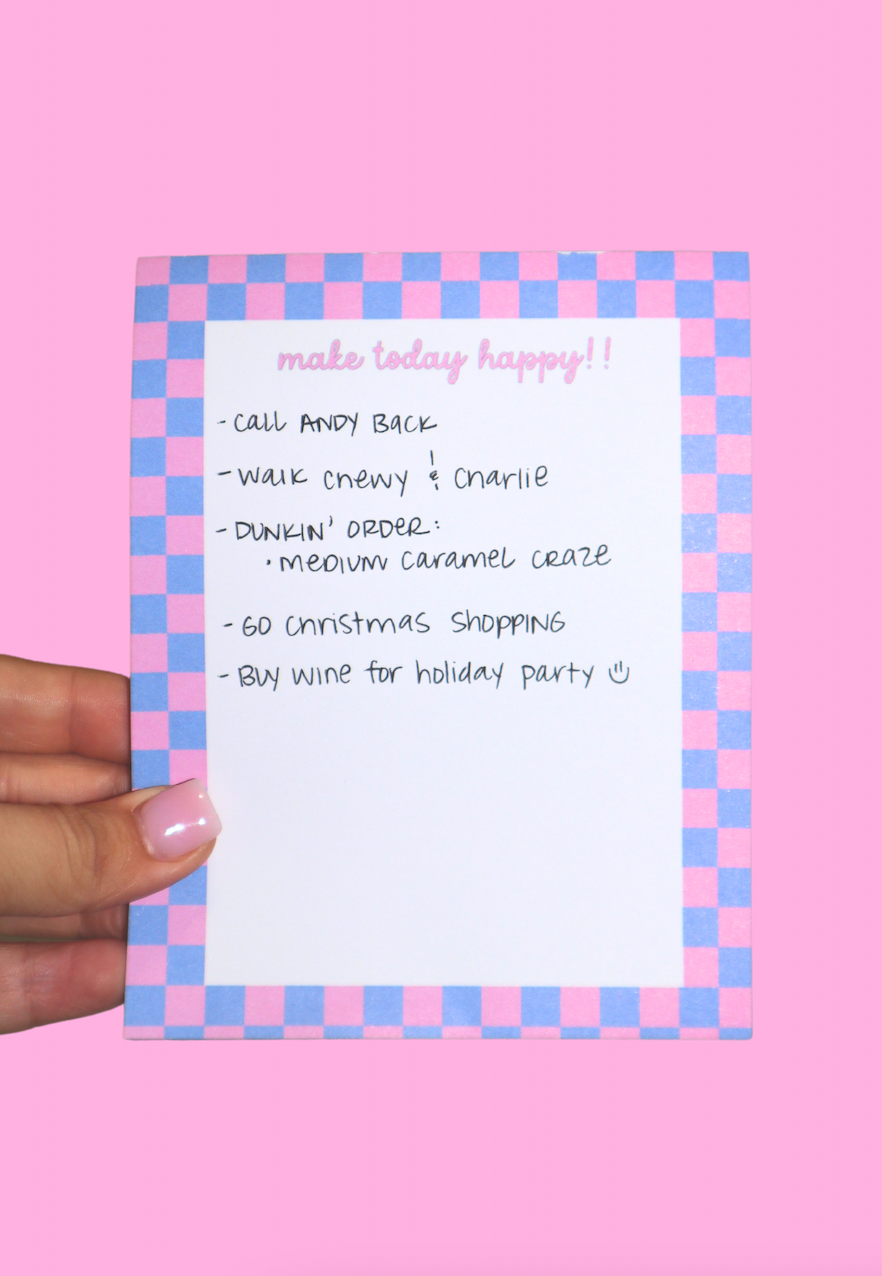 make today happy!!
- Call ANDY Back
- Walk chewy & Charlie
- DUNKIN' ORDER:
• MEDIUM Caramel CRAZE
- GO Christmas SHOPPING
- Buy wine for holiday party